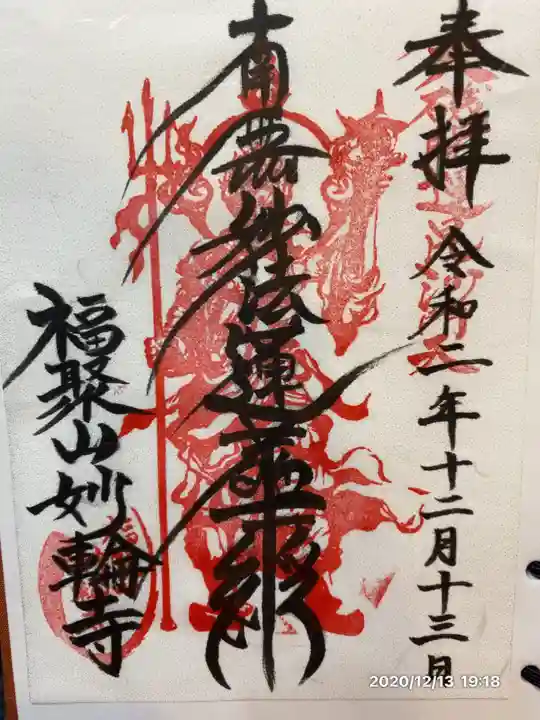 奉拝 令和二年十二月十三日
南無妙法蓮華経
福聚山妙輪寺
2020/12/13 19:18